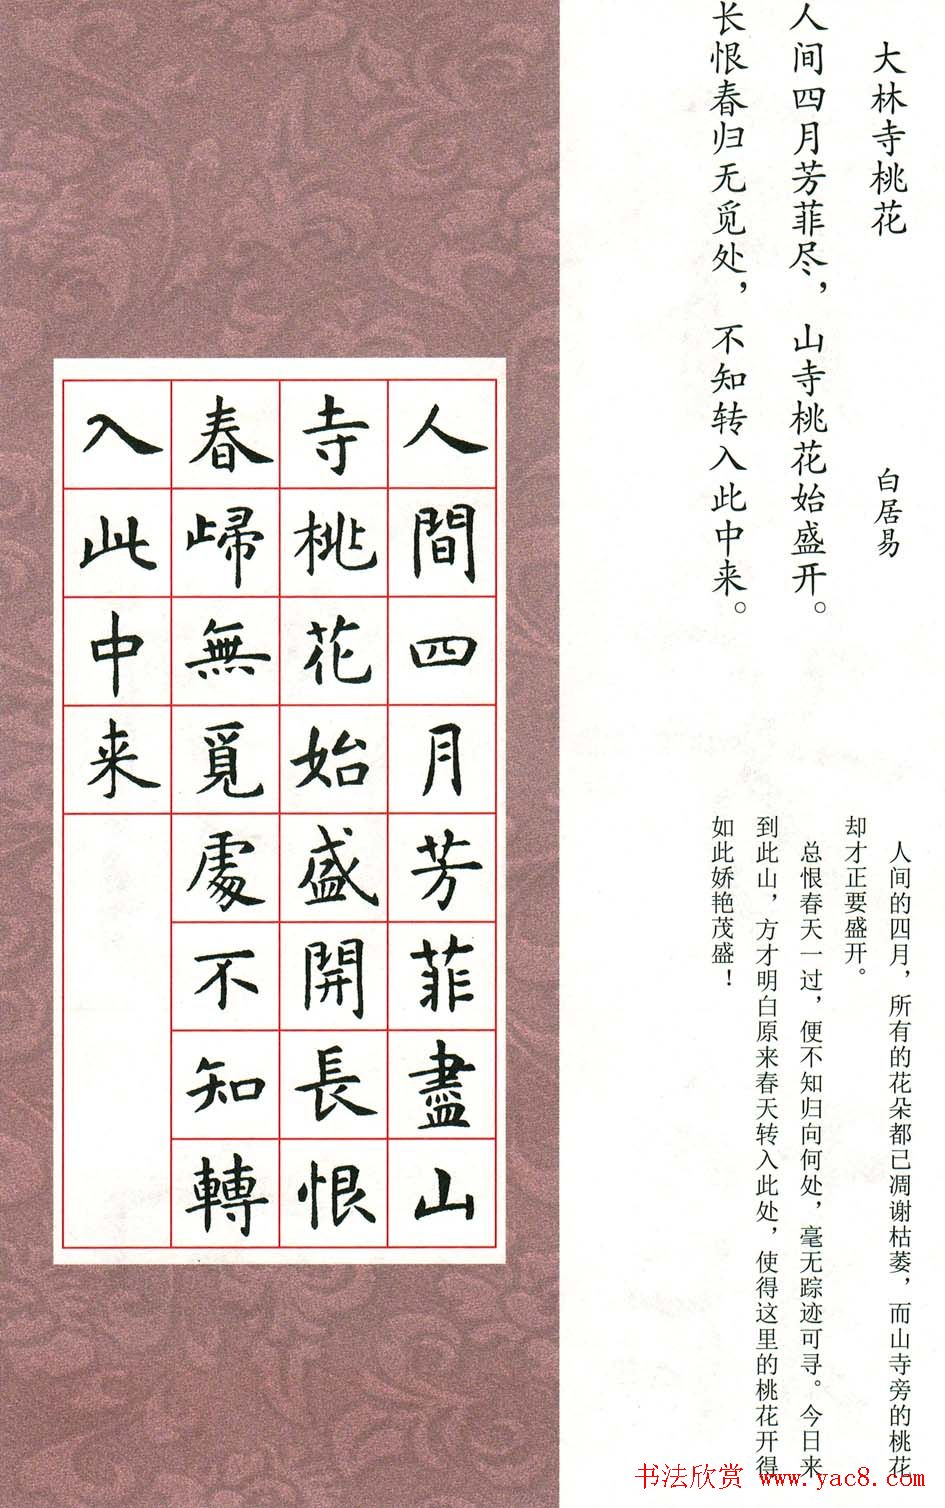 大林寺桃花
白居易
人间四月芳菲尽，山寺桃花始盛开。
长恨春归无觅处，不知转入此中来。
人间的四月，所有的花朵都已凋谢枯萎，而山寺旁的桃花
却才正要盛开。
总恨春天一过，便不知归向何处，毫无踪迹可寻。今日来
到此山，方才明白原来春天转入此处，使得这里的桃花开得
如此娇艳茂盛！
人間四月芳菲盡山
寺桃花始盛開長恨
春歸無覓處不知轉
入此中来
书法欣赏 www.yac8.com